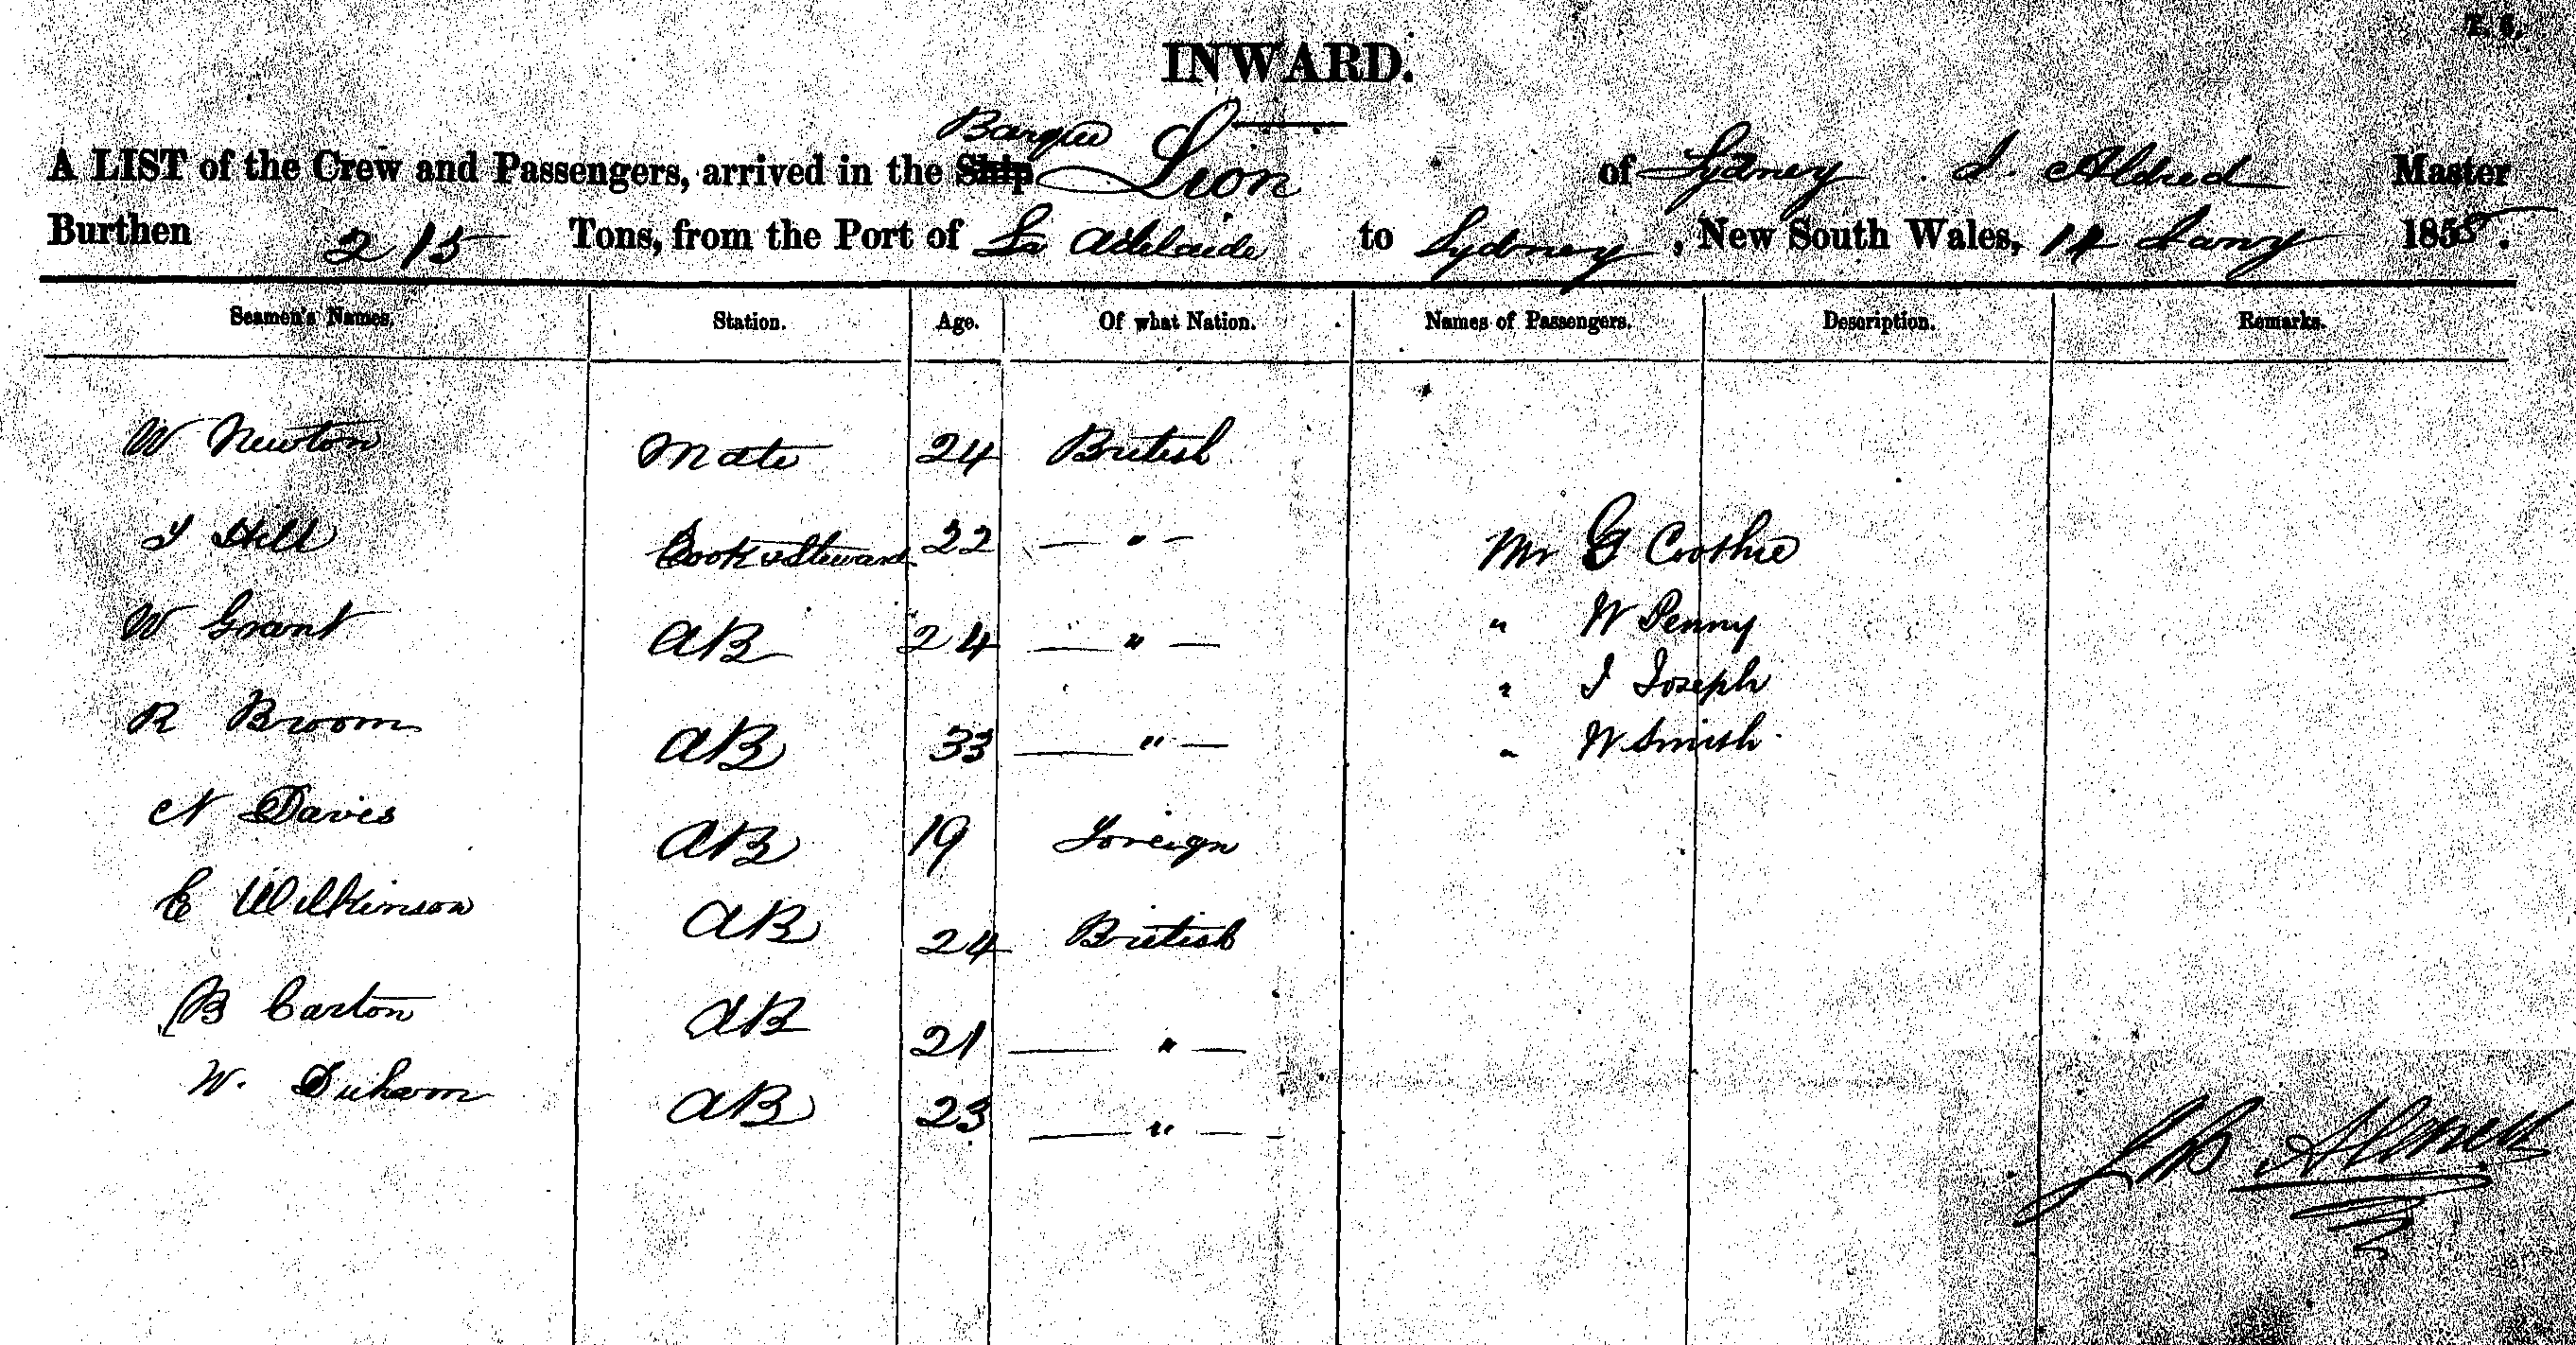 T. 5.
INWARD.
A LIST of the Crew and Passengers, arrived in the Ship Barque Lion of Sydney J. Aldred Master
Burthen 215 Tons, from the Port of Adelaide to Sydney, New South Wales, 14 Jany 1855.
Seamen's Names. Station. Age. Of what Nation. Names of Passengers. Description. Remarks.
W Newton Mate 24 British
J Hill Cook & Steward 22 — " — Mr G Crothie
W Grant AB 24 — " — " W Penny
" J Joseph
R Broom AB 33 — " — " W Smith
N Davies AB 19 Foreign
E Wilkinson AB 24 British
B Carton AB 21 — " —
W. Duham AB 23 — " —